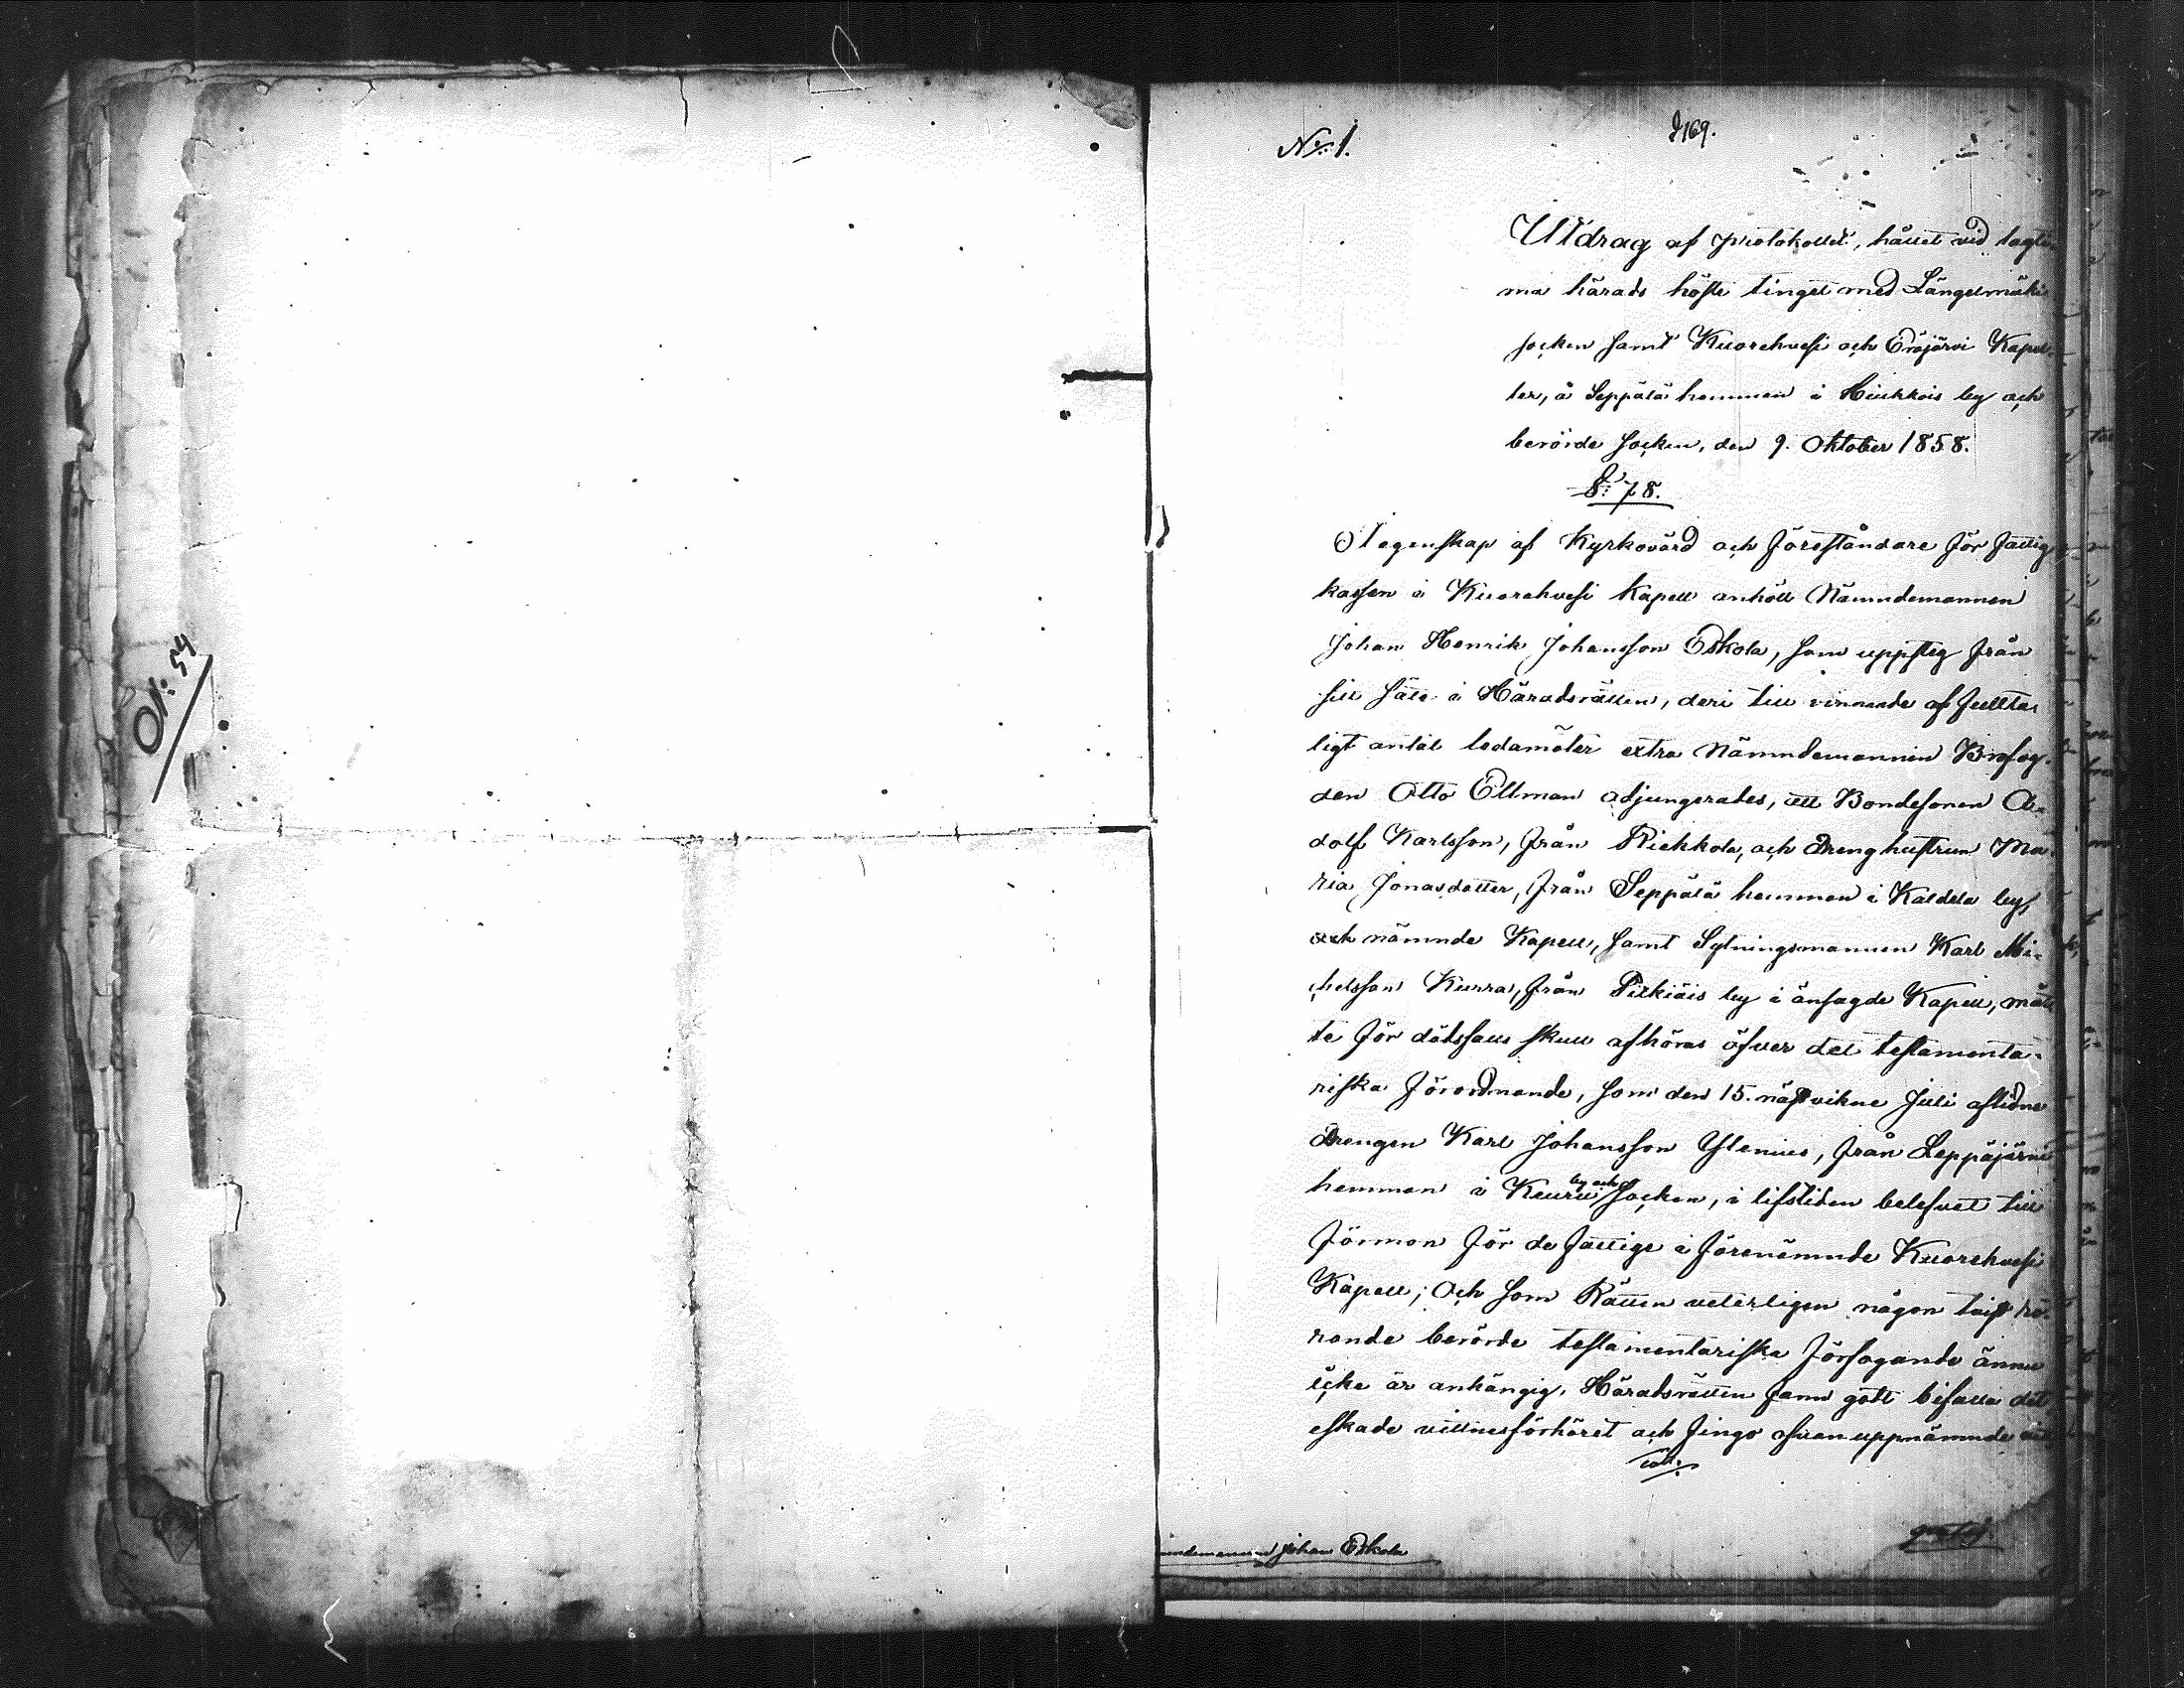 No 1.
169.
Utdrag af protokollet, hållet vid lagti-
ma härads höste tinget med Längelmäki
socken samt Kuorehvesi och Eräjärvi Kapel-
ler, å Seppälä hemman i Hiukkois by och
berörde socken, den 9. Oktober 1858.
§: 78.
I egenskap af Kyrkovärd och föreståndare för fattig
kassan i Kuorehvesi Kapell anhöll Nämndemannen
Johan Henrik Johansson Eskola, som uppsteg från
sitt säte i Häradsrätten, deri till vinnande af fullta-
ligt antal ledamöter extra Nämndemannen Brofog-
den Otto Ellman adjungerades, att Bondesonen A-
dolf Karlsson, från Riehkola, och Drenghustrun Ma-
ria Jonasdotter, från Seppälä hemman i Kaldela by,
och nämnde Kapell, samt Sytningsmannen Karl Mi-
chelsson Kurra, från Pirkiäis by i änsagde Kapell, måt-
te för dödsfalls skull afhöras öfver det testamenta-
riska förordnande, som den 15. nästvikne Juli aflidne
Drengen Karl Johansson Ylenius, från Leppäjärvi
hemman i Keuru by och socken, i lifstiden belefvat till
förmon för de fattige i förenämnde Kuorehvesi
Kapell; Och som Rätten veterligen någon tvist rö-
rande berörde testamentariska förfogande ännu
icke är anhängig, Häradsrätten fann godt bifalla det
eskade vittnesförhöret och fingo ofvanuppnämnde
Johan Eskola
gratis.
Ol: 54